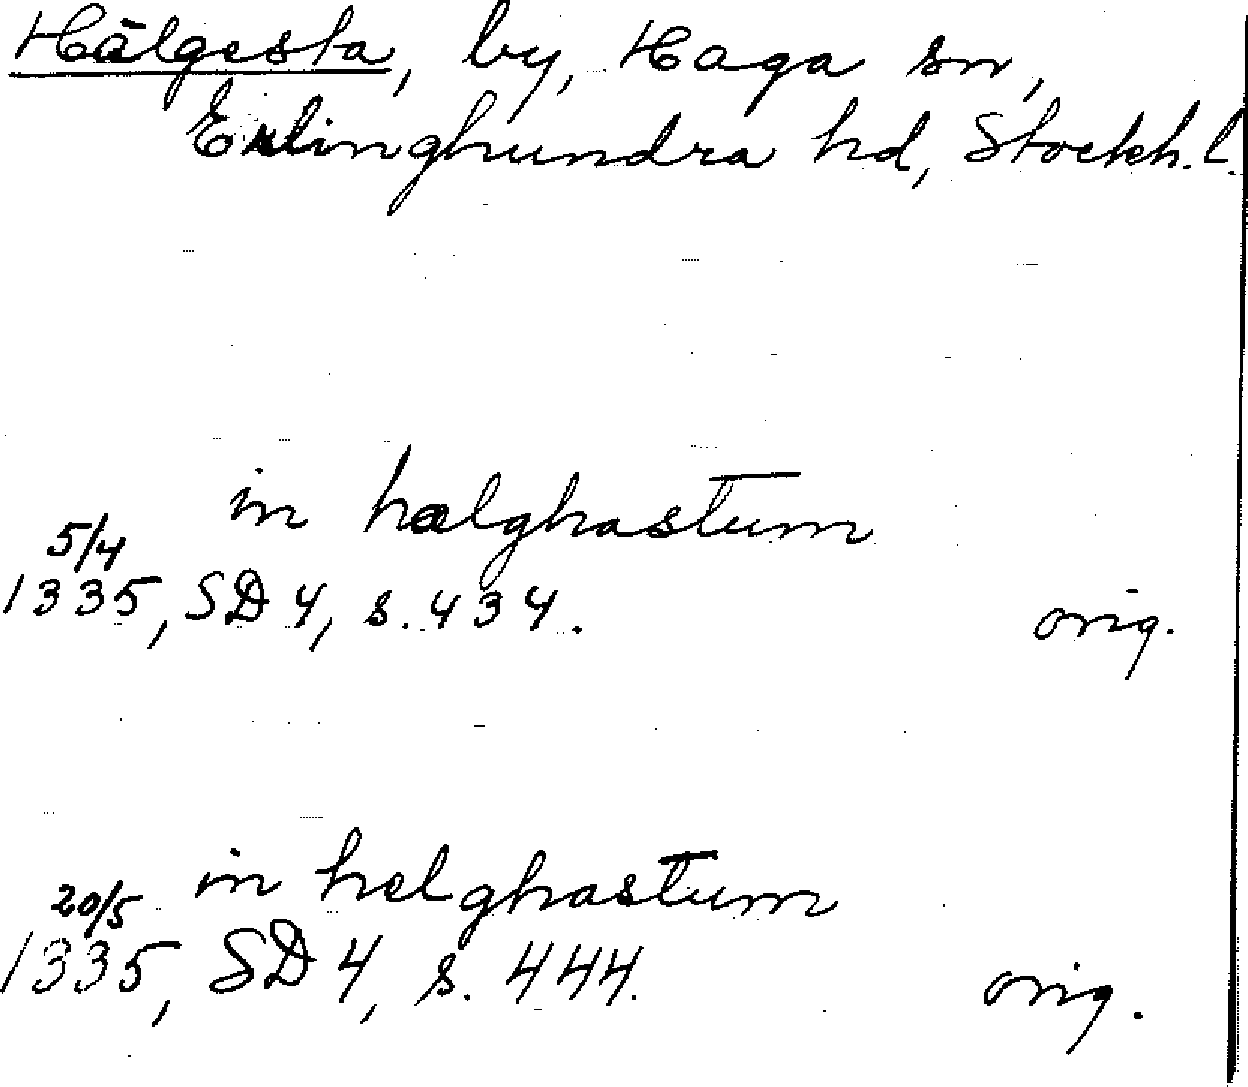 Hälgesta, by, Haga sn,
Erlinghundra hd, Stockh. l.
in hælghastum
5/4
1335, SD 4, s. 434.
orig.
in helghastum
20/5
1335, SD 4, s. 444.
orig.